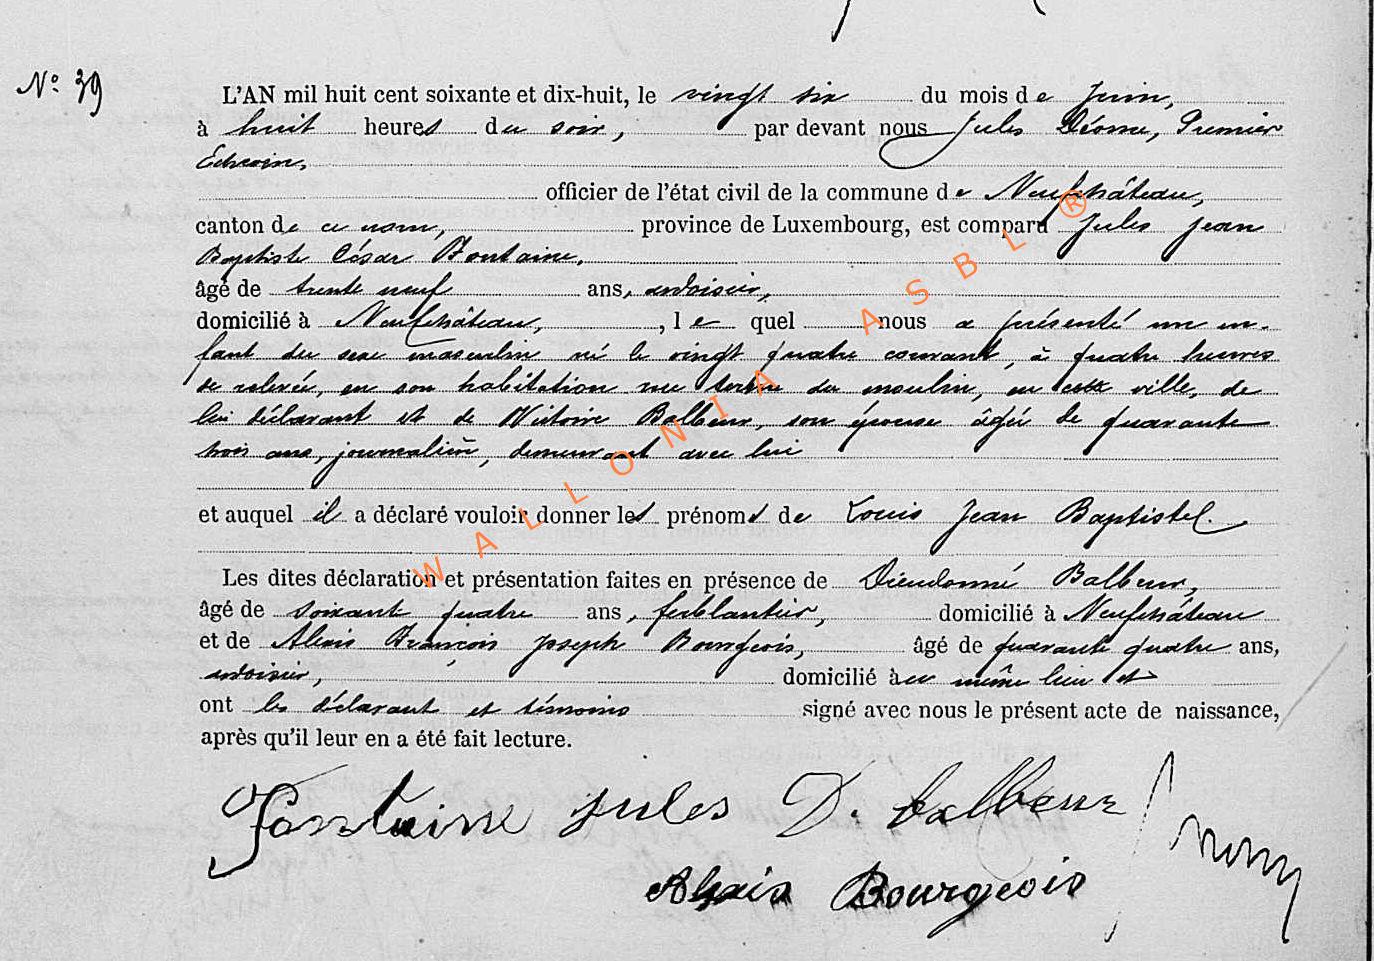 N° 39
L'AN mil huit cent soixante et dix-huit, le vingt six du mois de Juin,
à huit heures du soir, par devant nous Jules Déome, Premier
Echevin,
officier de l'état civil de la commune de Neufchâteau,
canton de ce nom, province de Luxembourg, est comparu Jules Jean
Baptiste César Fontaine,
âgé de trente neuf ans, ardoisier,
domicilié à Neufchâteau, , le quel nous a présenté un en-
fant du sexe masculin né le vingt quatre courant, à quatre heures
de relevée, en son habitation rue du moulin, en cette ville, de
lui déclarant et de Victoire Balbeur, son épouse âgée de quarante
trois ans, journalière, demeurant avec lui
et auquel il a déclaré vouloir donner les prénoms de Louis Jean Baptiste.
Les dites déclaration et présentation faites en présence de Dieudonné Balbeur,
âgé de soixant quatre ans, ferblantier, domicilié à Neufchâteau
et de Alexis François Joseph Bourgeois, âgé de quarante quatre ans,
ardoisier, domicilié à au même lieu et
ont les déclarant et témoins signé avec nous le présent acte de naissance,
après qu'il leur en a été fait lecture.
Fontaine jules D. balbeur
Alexis Bourgeois
WALLONIA ASBL ®